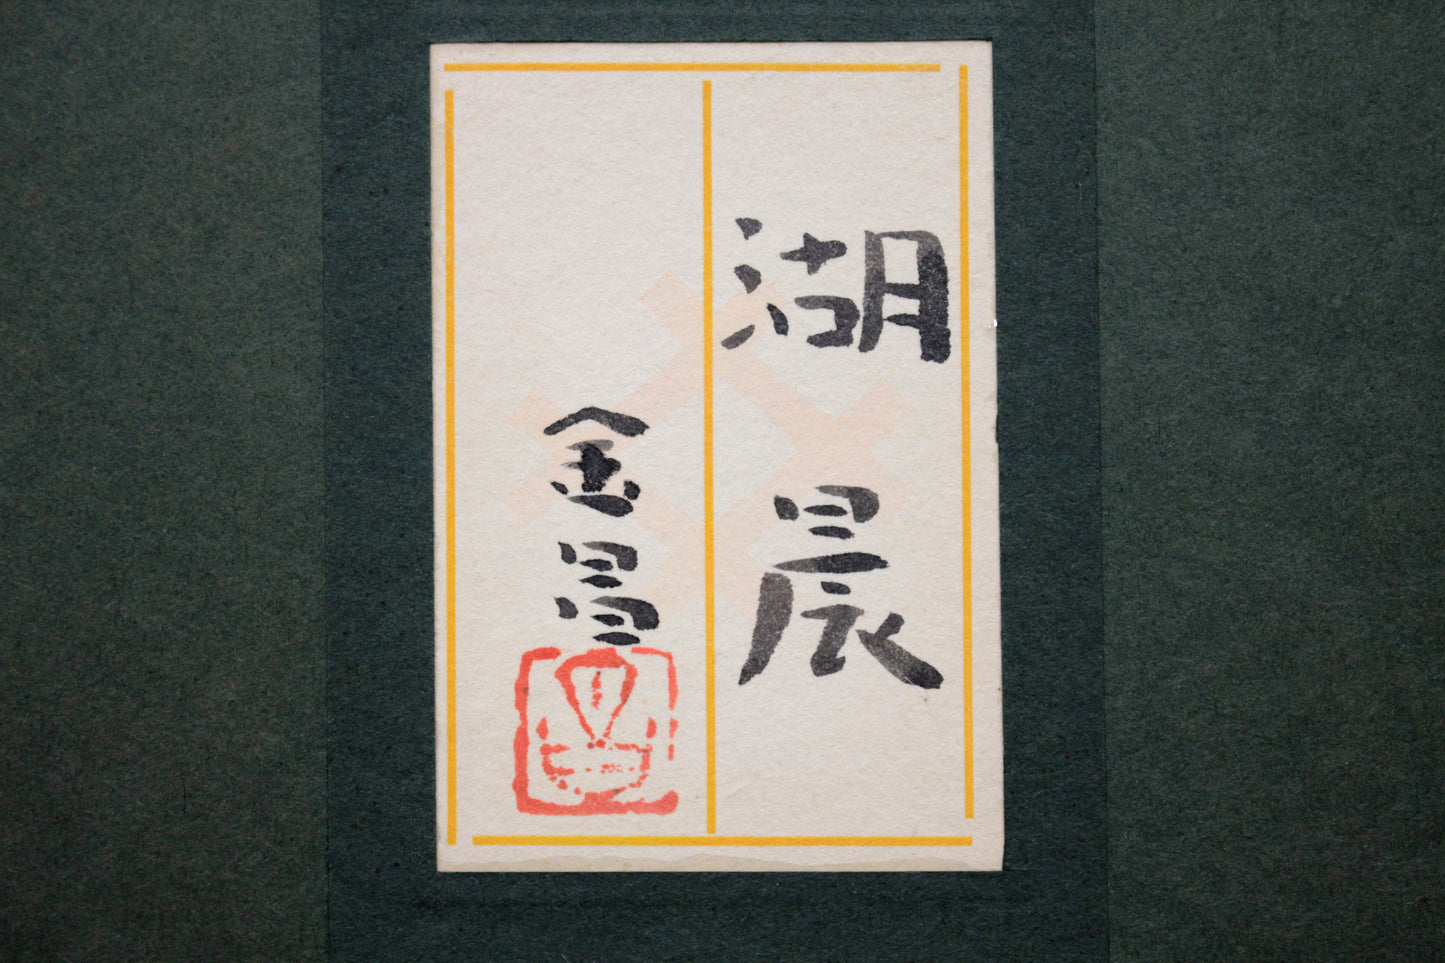 湖晨
金昌